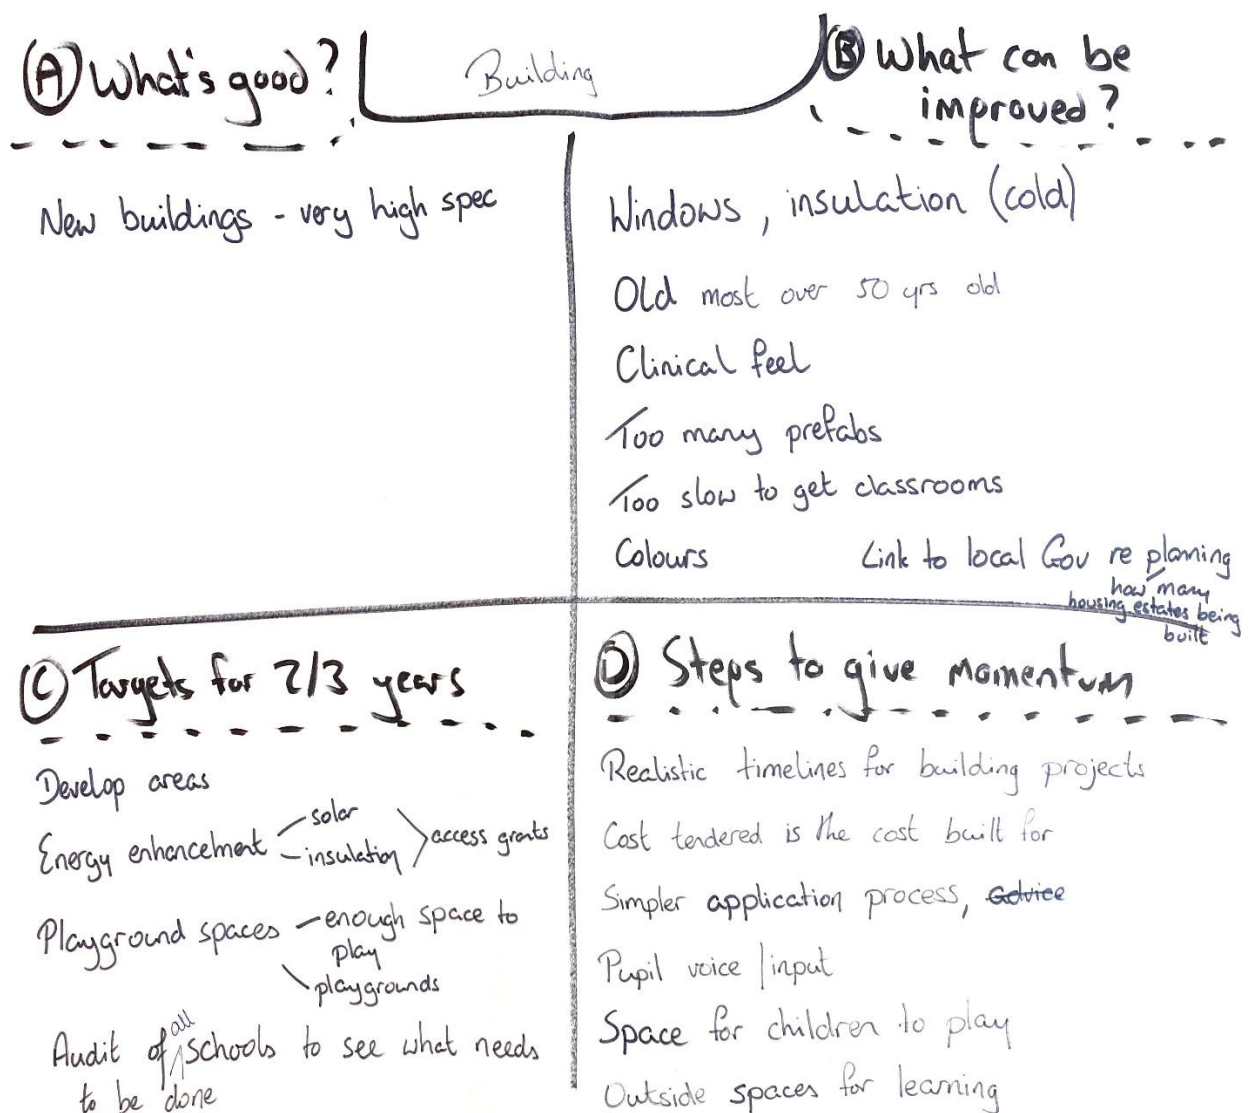 Building
Ⓐ What's good?
New buildings - very high spec
Ⓑ What can be
improved?
Windows, insulation (cold)
Old most over 50 yrs old
Clinical feel
Too many prefabs
Too slow to get classrooms
Colours
Link to local Gov re planing
how many
housing estates being
built
Ⓒ Targets for 2/3 years
Develop areas
Energy enhancement
solar
insulation
access grants
Playground spaces
enough space to
play
playgrounds
Audit of all schools to see what needs
to be done
Ⓓ Steps to give momentum
Realistic timelines for building projects
Cost tendered is the cost built for
Simpler application process,
Pupil voice / input
Space for children to play
Outside spaces for learning